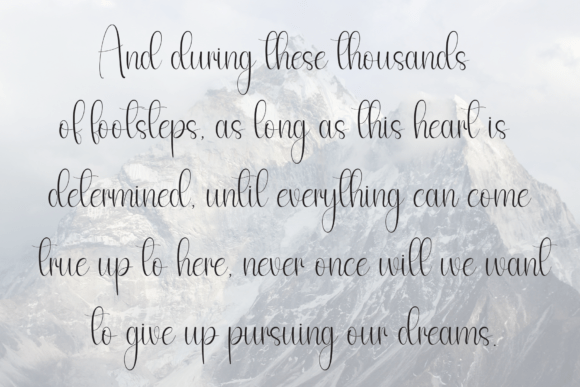 And during these thousands
of footsteps, as long as this heart is
determined, until everything can come
true up to here, never once will we want
to give up pursuing our dreams.